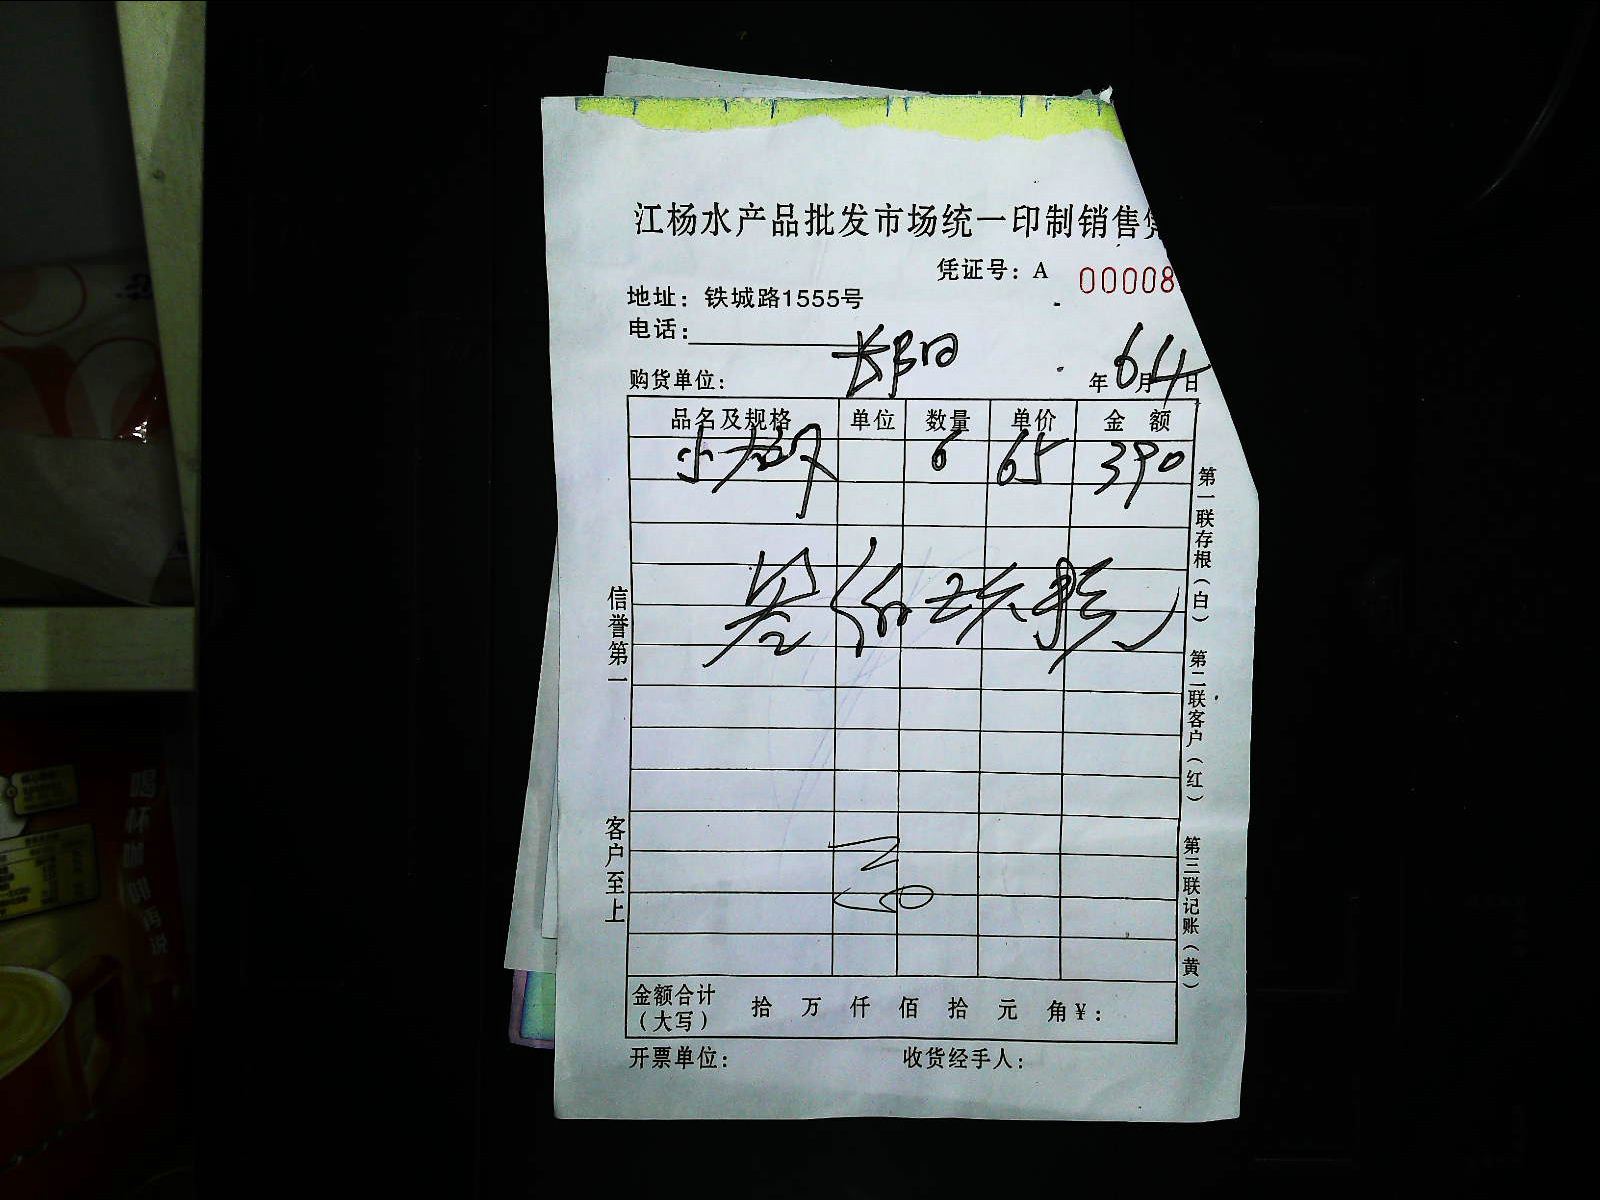 江杨水产品批发市场统一印制销售
凭证号：A 00008
地址：铁城路1555号
电话：
购货单位：长阳 年6月4日
品名及规格 单位 数量 单价 金额
小 6 65 390
信誉第一
客户至上
第一联存根（白）
第二联客户（红）
第三联记账（黄）
金额合计（大写） 拾 万 仟 佰 拾 元 角 ¥：
开票单位： 收货经手人：
喝杯咖啡再说